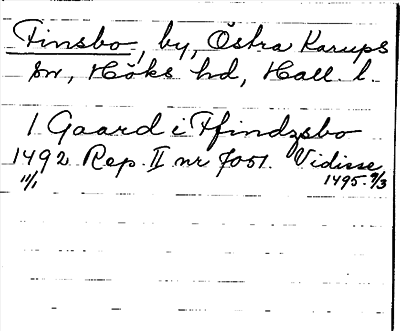 Finsbo, by, Östra Karups
sn, Höks hd, Hall. l.
1 Gaard i Ffindzsbo
1492 Rep. II nr 7051. Vidisse
11/1 1495. 9/3